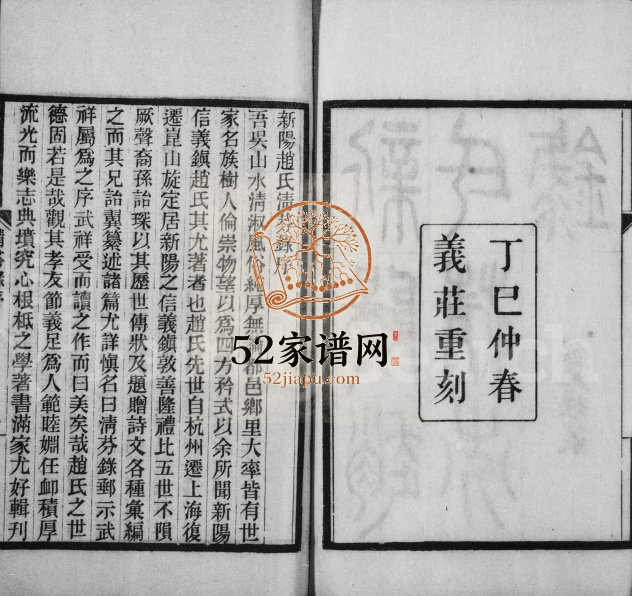 丁巳仲春
義莊重刻
新陽趙氏清芬錄序
吾吳山水清淑風俗純厚無郡邑鄉里大率皆有世
家名族樹人倫崇物望以爲四方矜式以余所聞新陽
信義鎮趙氏其尤著者也趙氏先世自杭州遷上海復
遷崑山旋定居新陽之信義鎮敦善隆禮比五世不隕
厥聲裔孫詒琛以其歷世傳狀及題贈詩文各種彙編
之而其兄詒翼纂述諸篇尤詳慎名曰清芬錄郵示武
祥屬爲之序武祥受而讀之作而曰美矣哉趙氏之世
德固若是哉觀其孝友節義足爲人範睦婣任卹積厚
流光而樂志典墳究心根柢之學著書滿家尤好輯刊
52家谱网
52jiapu.com